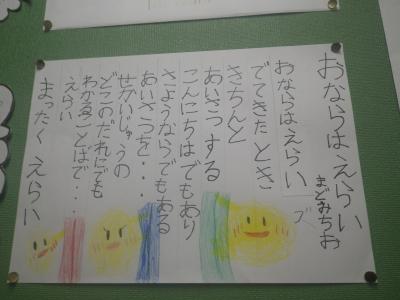 おならは えらい
まどみちお
おならは えらい
でてきた とき
きちんと
あいさつ する
こんにちは でもあり
さようなら でもある
あいさつを・・・
せかいじゅうの
どこの だれにでも
わかる ことばで・・・
えらい
まったく えらい